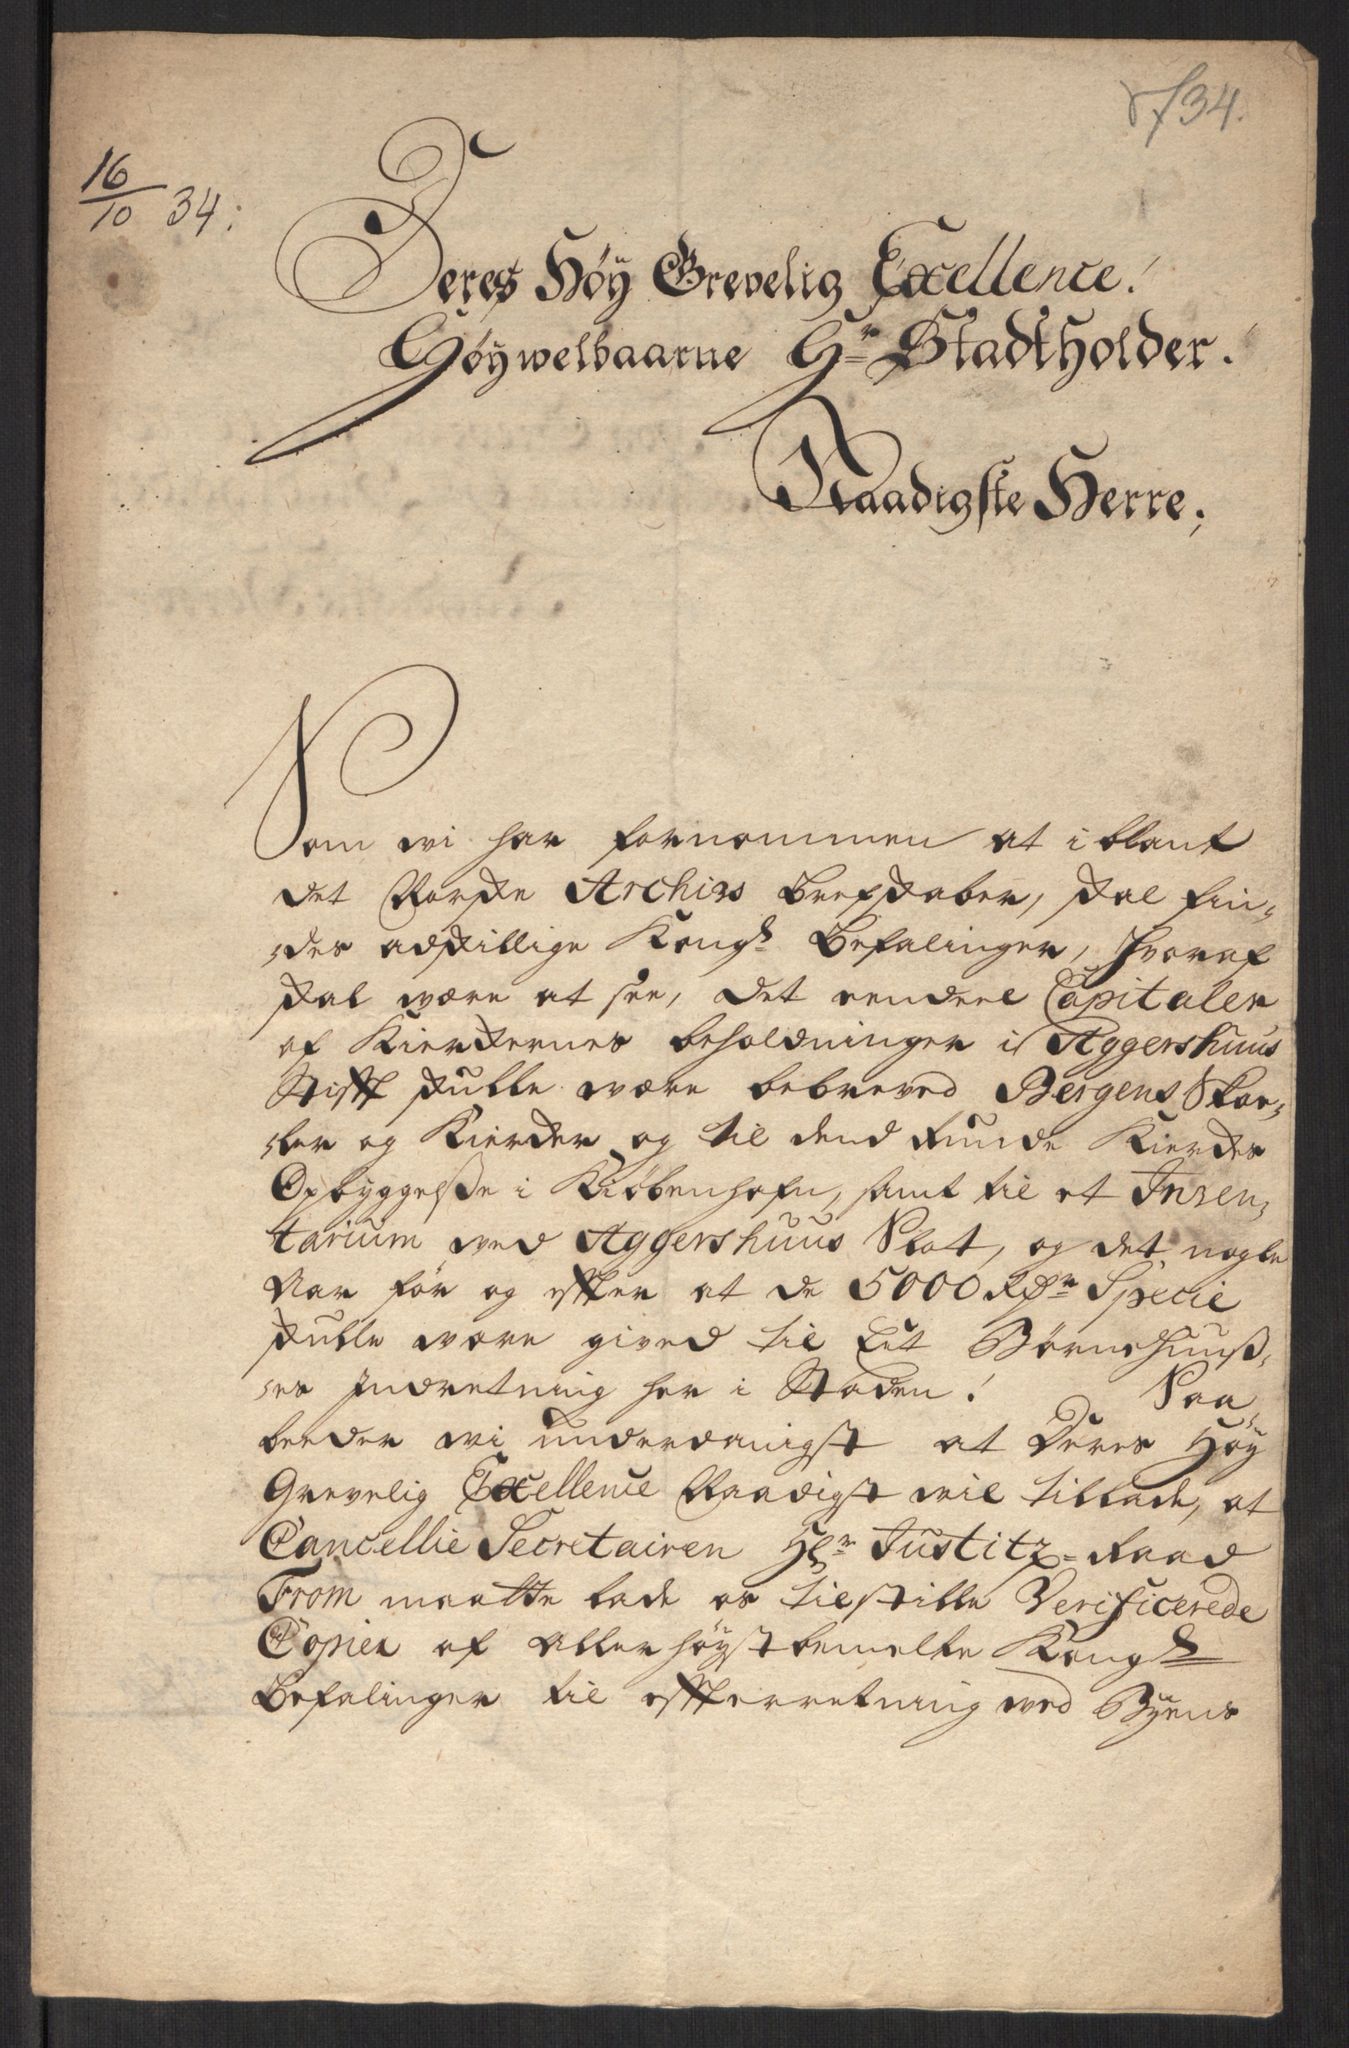 734.
16/10 34:
Deres Höy Grevelig Excellence!
Höywelbaarne Hr Stadtholder.
Naadigste Herre;
Som wi har fornommen at iblant
det Norske Archivs brefskaber, skal fin-
des adskillige Kongl Befalinger, hvoraf
skal være at see, det eendeel Capitaler
af Kierkernes beholdninger i Aggershuus
Stifft skulle være bebreved Bergens Skoe-
ler og Kierker og til dend Runde Kierkes
Opbyggelse i Kiöbenhafn, samt til et Inven-
tarium ved Aggershuus Slot, og det nogle
Aar för og effter at de 5000 Rdr Specie
skulle være gived til Eet Börnehuus-
es Indretning her i Staden! Saa
beeder wi underdanigst at Deres Höy
Grevelig Excellence Naadigst wil tillade, at
Cancellie Secretairen Hr Justitz-Raad
From maatte lade os tilstille Verificerede
Copier af Allerhöystbemelte Kongl
Befalinger til effterretning ved Byens